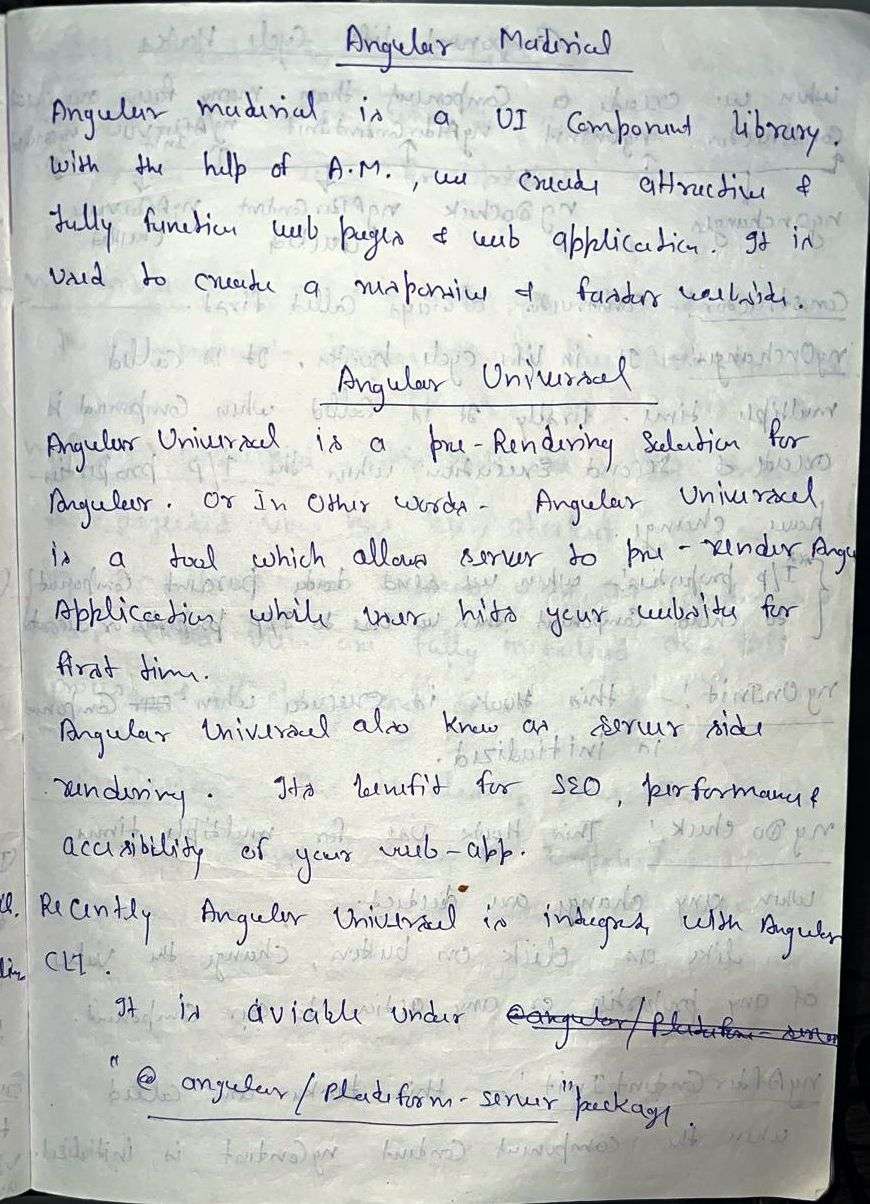 Angular Material
Angular material is a UI Component library.
With the help of A.M., we create attractive &
fully function web pages & web application. It is
used to create a responsive & faster website.
Angular Universal
Angular Universal is a pre-Rendering Solution for
Angular. Or In Other words - Angular Universal
is a tool which allows server to pre-render Angu
Application while user hits your website for
first time.
Angular Universal also know as server side
rendering. Its benefit for SEO, performance &
accesibility of your web-app.
Recently Angular Universal is integred with Angular
CLI.
It is aviable under @angular/platform-server
"@angular/plateform-server" package.